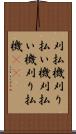 刈払機刈り
払い機刈払
い機刈り払
機